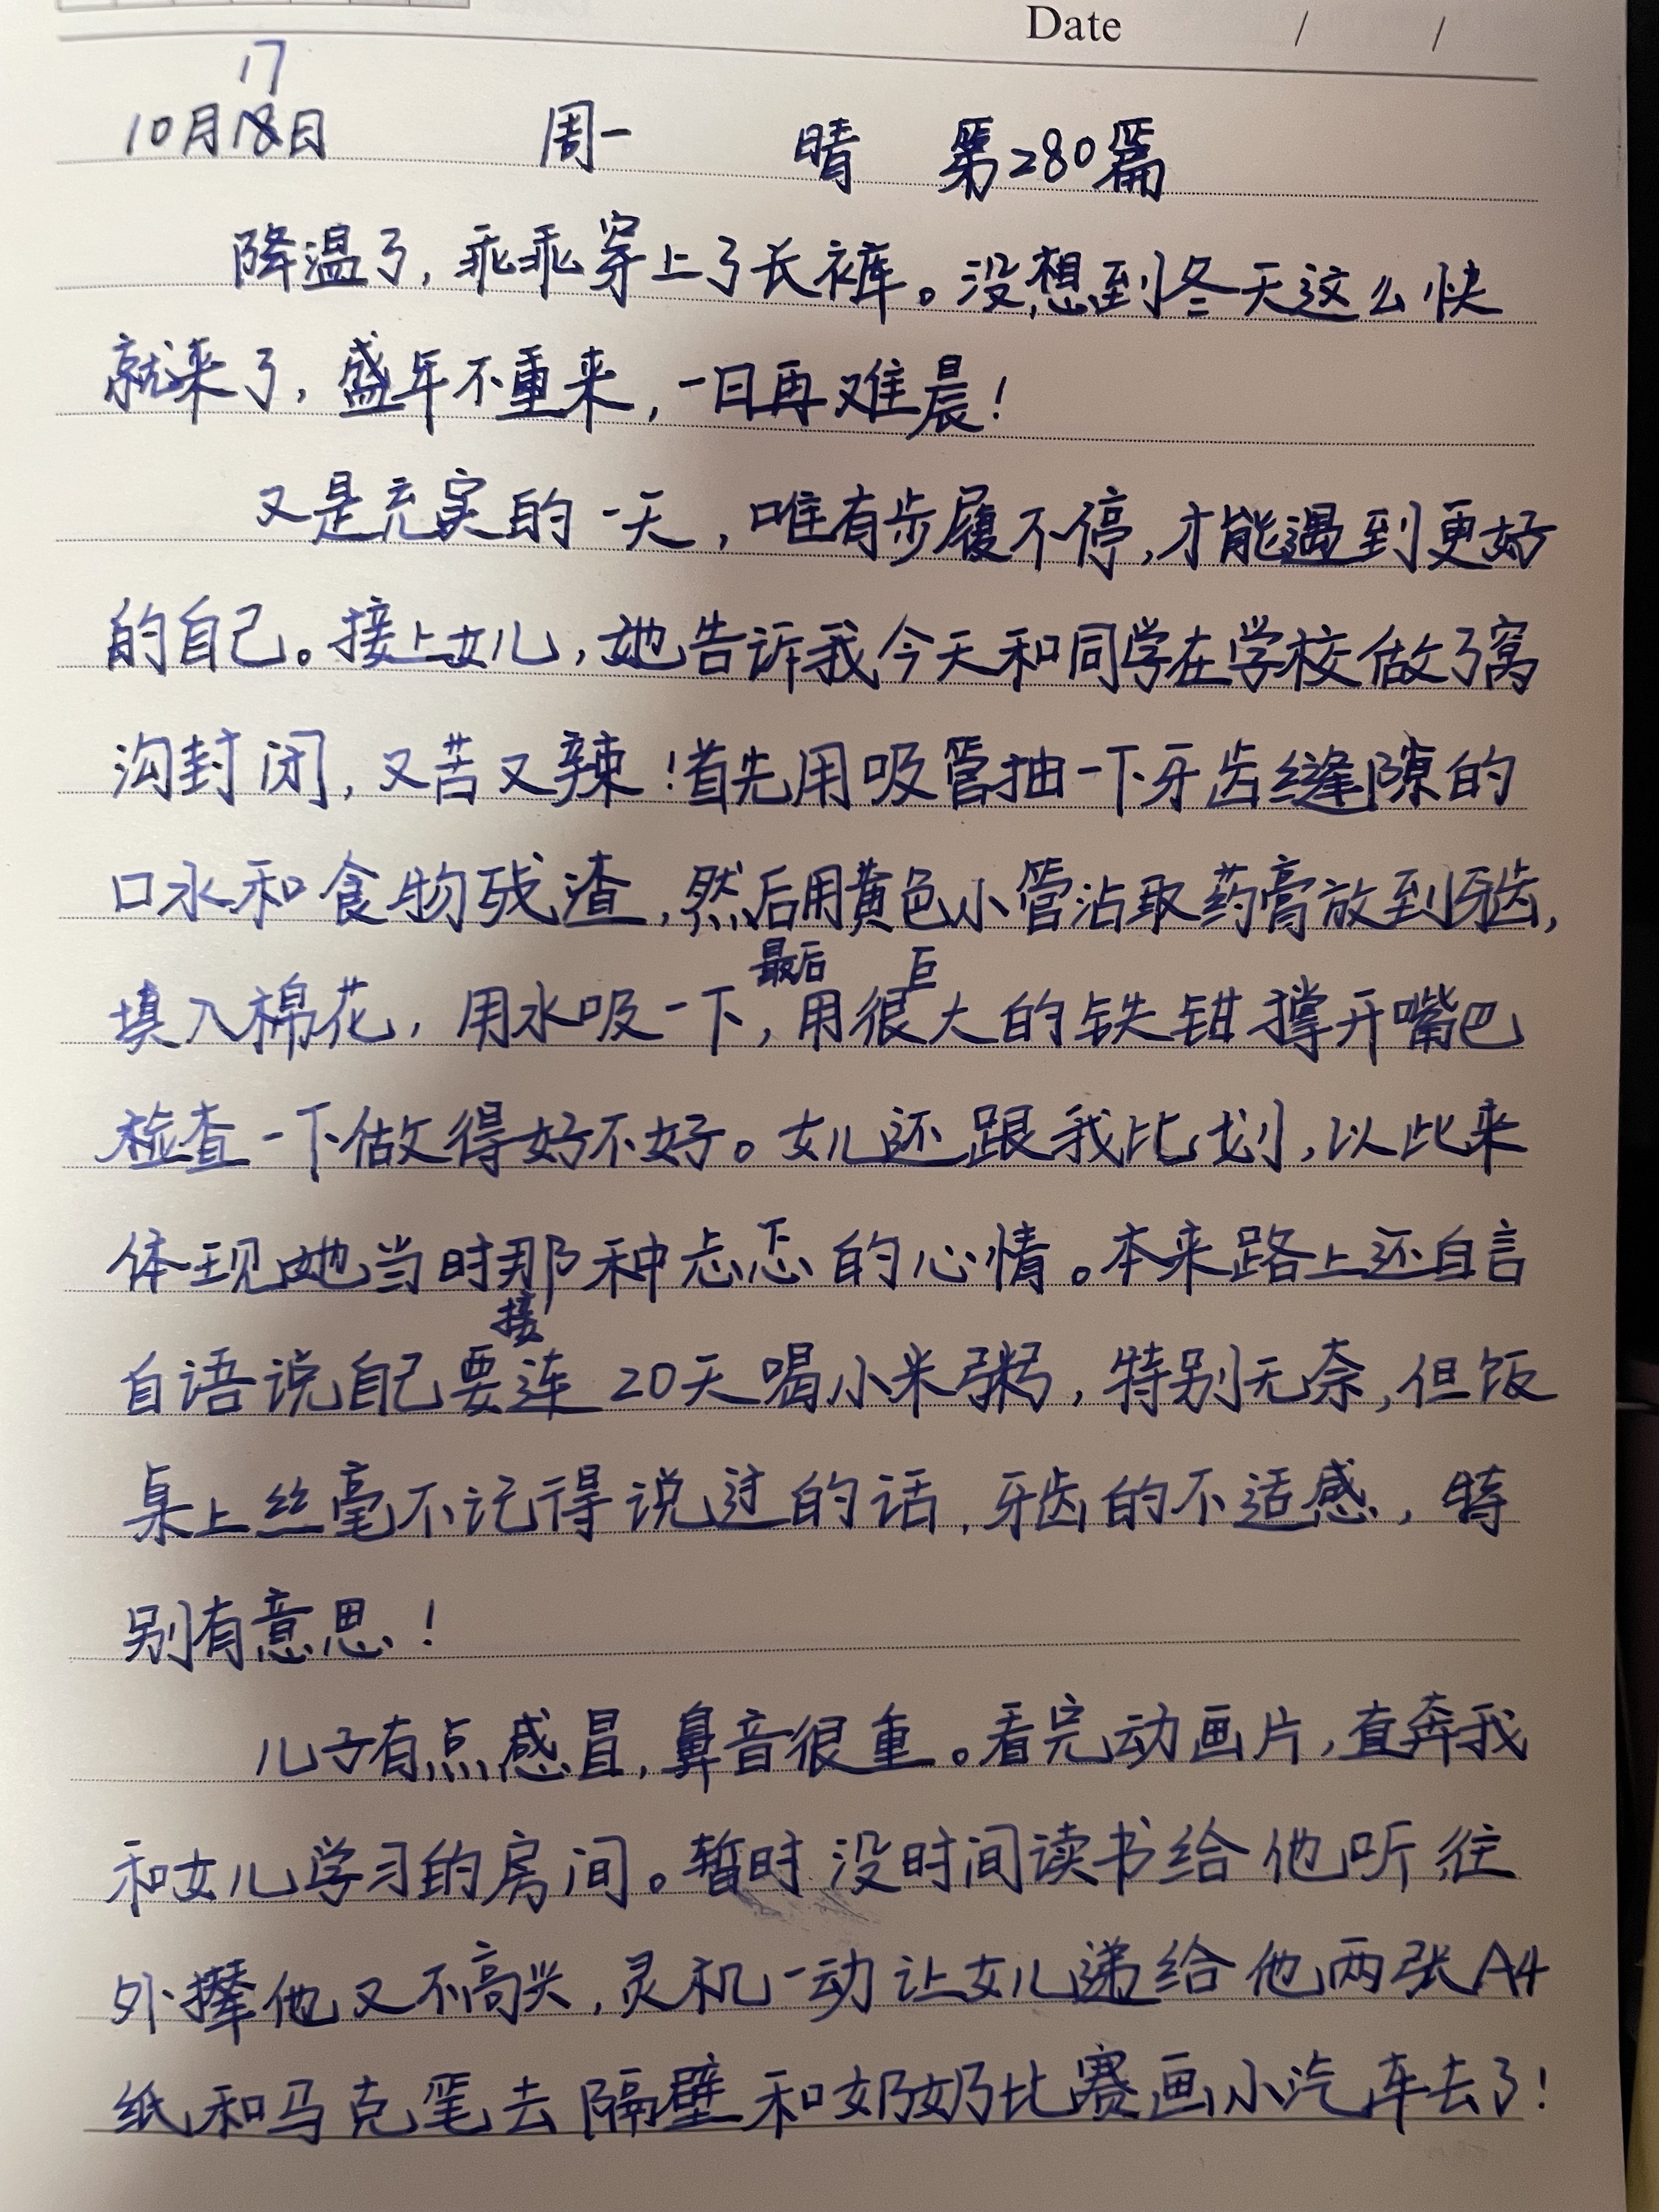 Date / /
17
10月18日 周一 晴 第280篇
降温了，乖乖穿上了长裤。没想到冬天这么快
就来了，盛年不重来，一日再难晨！
又是充实的一天，唯有步履不停，才能遇到更好
的自己。接上女儿，她告诉我今天和同学在学校做了窝
沟封闭，又苦又辣！首先用吸管抽一下牙齿缝隙的
口水和食物残渣，然后用黄色小管沾取药膏放到牙齿，
最后 巨
填入棉花，用水吸一下，用很大的铁钳撑开嘴巴
检查一下做得好不好。女儿还跟我比划，以此来
体现她当时那种忐忑的心情。本来路上还自言
接
自语说自己要连20天喝小米粥，特别无奈，但饭
桌上丝毫不记得说过的话，牙齿的不适感，特
别有意思！
儿子有点感冒，鼻音很重。看完动画片，直奔我
和女儿学习的房间。暂时没时间读书给他听往
外撵他又不高兴，灵机一动让女儿递给他两张A4
纸和马克笔去隔壁和奶奶比赛画小汽车去了！